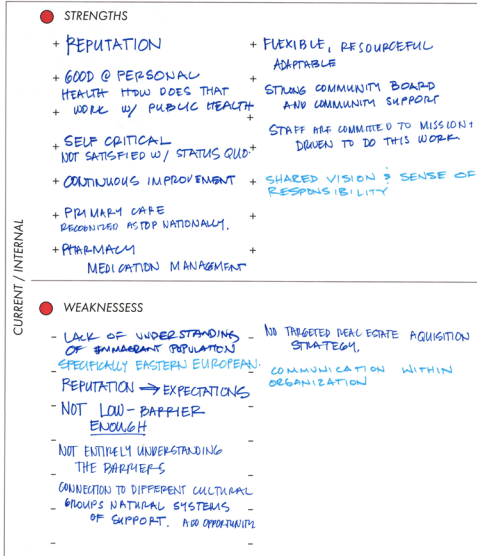 STRENGTHS
+ REPUTATION
+ GOOD @ PERSONAL
HEALTH HOW DOES THAT
+ WORK W/ PUBLIC HEALTH
+ SELF CRITICAL
NOT SATISFIED W/ STATUS QUO.
+ CONTINUOUS IMPROVEMENT
+ PRIMARY CARE
RECOGNIZED AS TOP NATIONALLY.
+ PHARMACY
MEDICATION MANAGEMENT
+ FLEXIBLE, RESOURCEFUL
ADAPTABLE
+
STRONG COMMUNITY BOARD
AND COMMUNITY SUPPORT
+
STAFF ARE COMMITTED TO MISSION +
DRIVEN TO DO THIS WORK
+
+ SHARED VISION & SENSE OF
RESPONSIBILITY
+
+
CURRENT / INTERNAL
WEAKNESSESS
- LACK OF UNDERSTANDING
OF IMMAGRANT POPULATION
SPECIFICALLY EASTERN EUROPEAN.
REPUTATION → EXPECTATIONS
- NOT LOW-BARRIER
ENOUGH
NOT ENTIRELY UNDERSTANDING
THE BARRIERS
CONNECTION TO DIFFERENT CULTURAL
GROUPS NATURAL SYSTEMS
OF SUPPORT. ALSO OPPORTUNITY
- NO TARGETED REAL ESTATE AQUISITION
STRATEGY.
COMMUNICATION WITHIN
ORGANIZATION